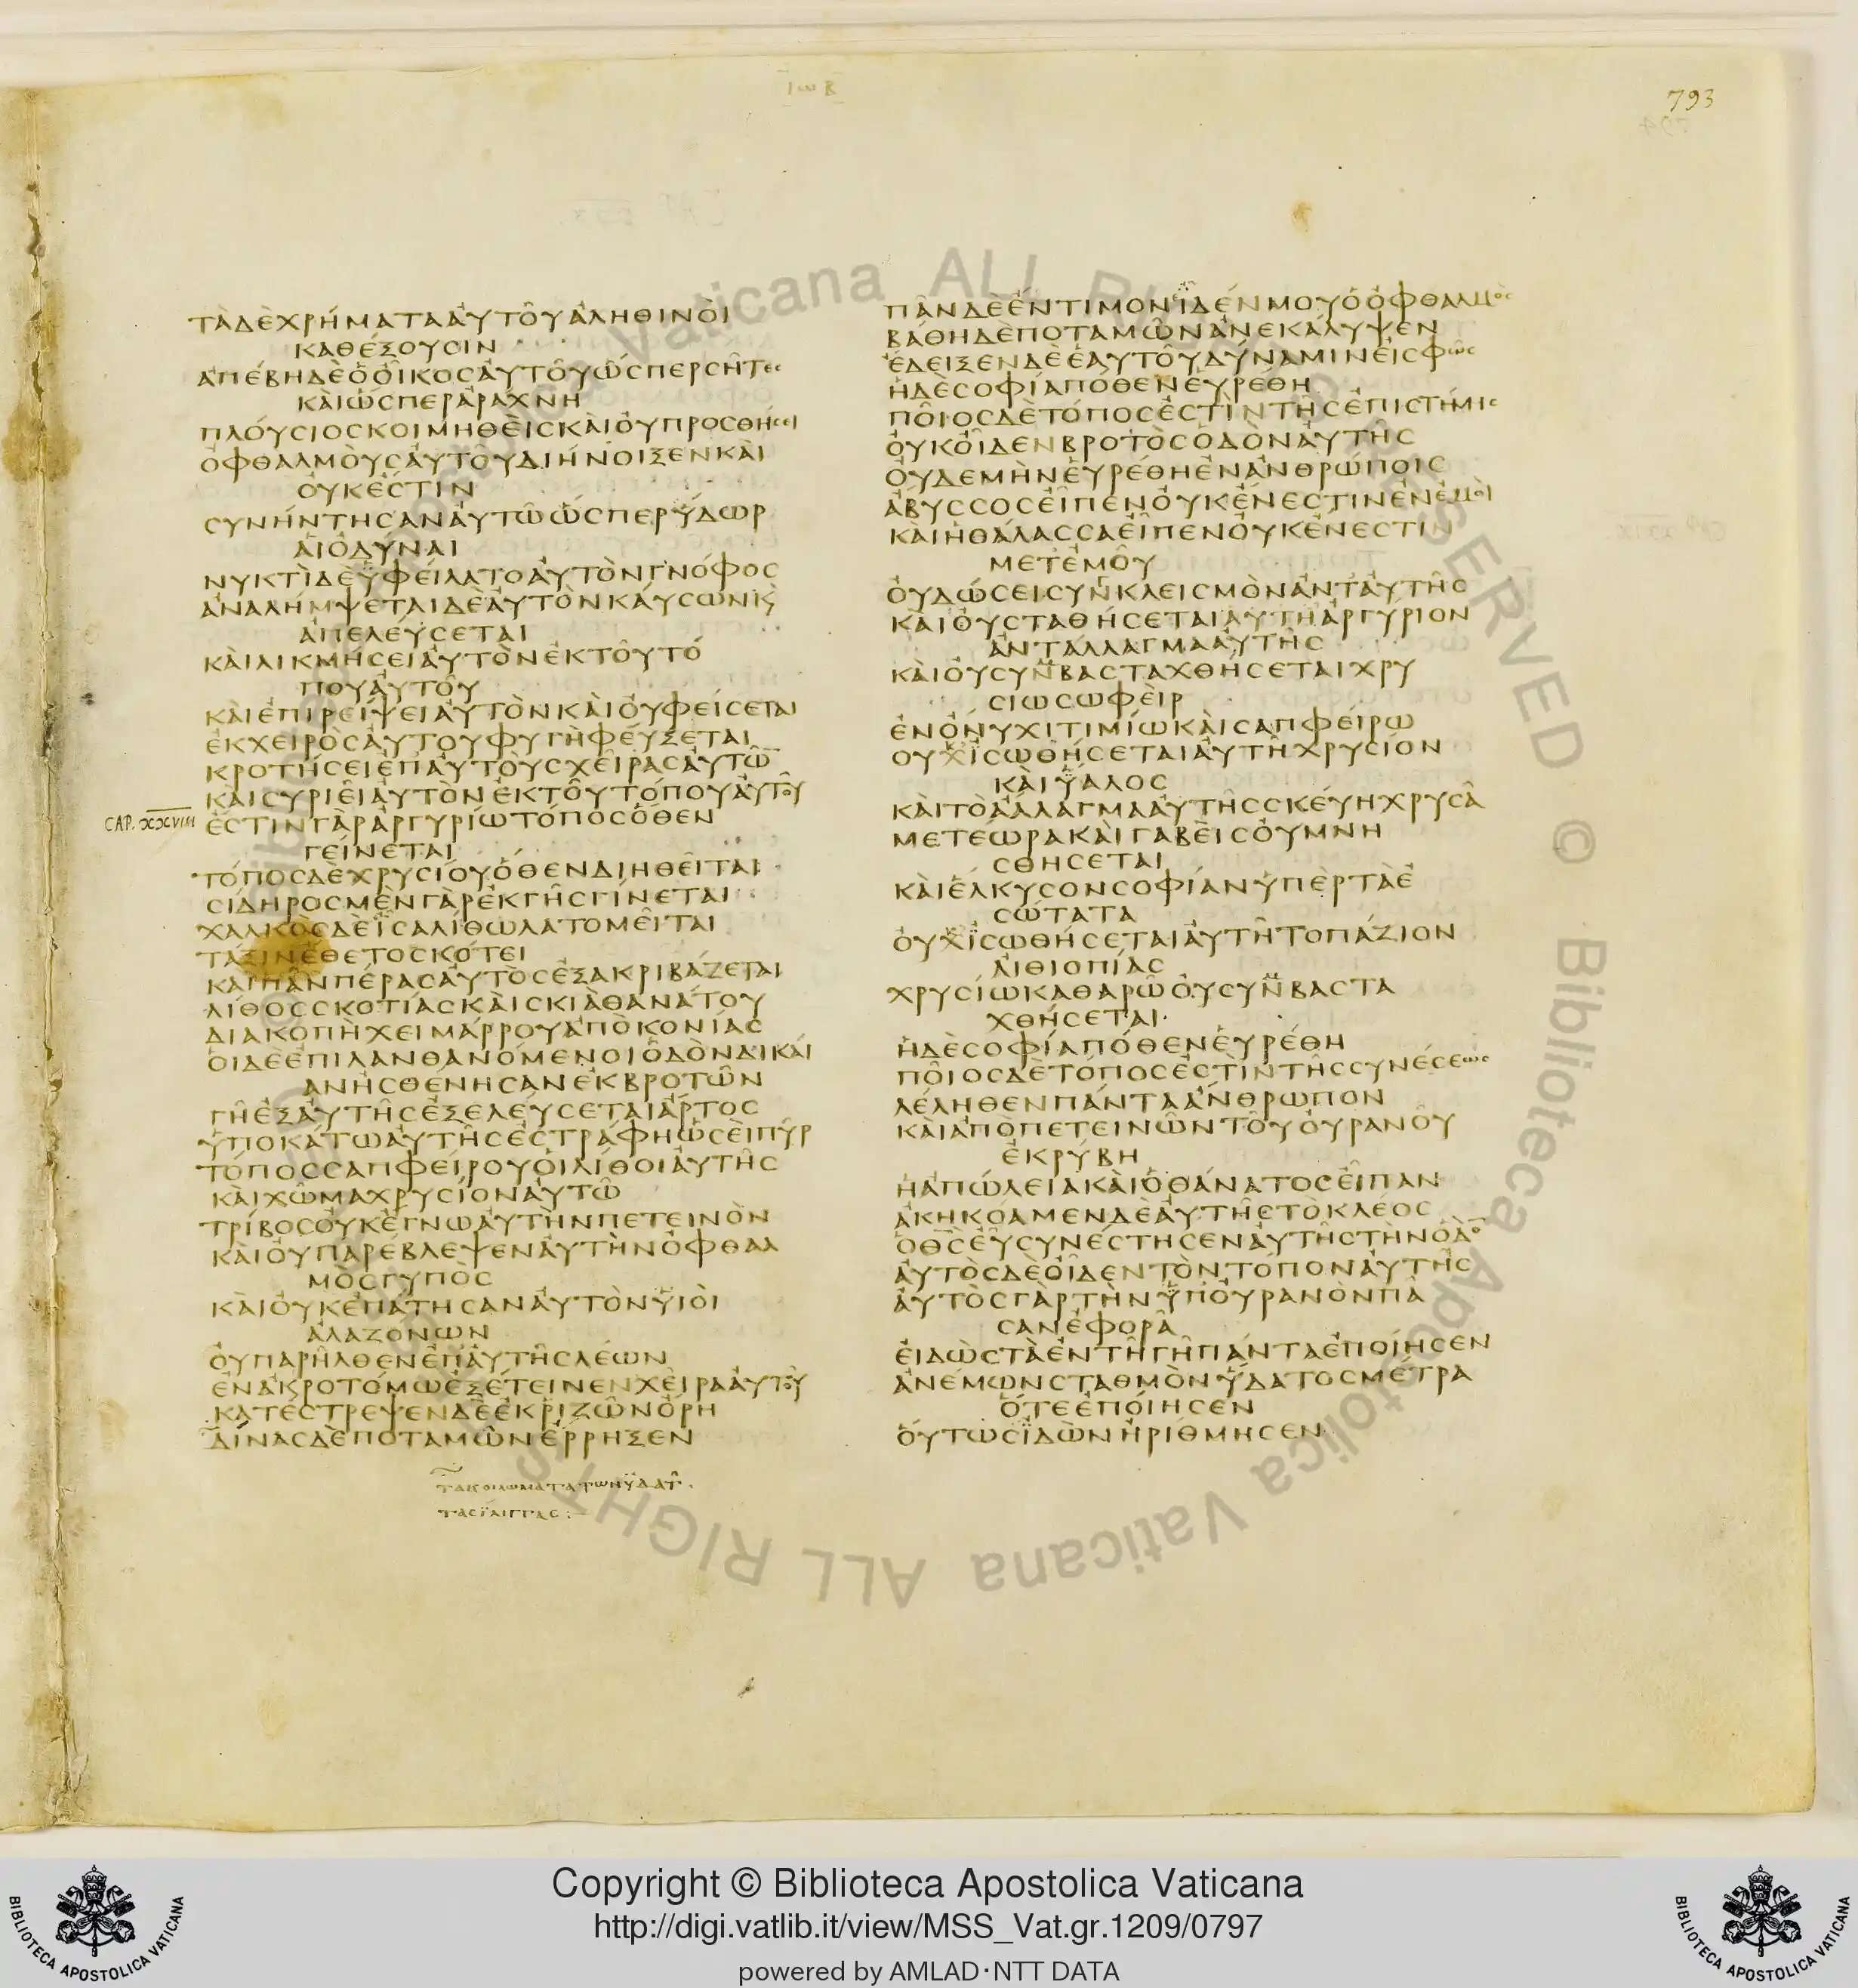 ΙωΒ
793
ΤᾺΔῈΧΡΉΜΑΤΑΑΥ̓ΤΟΥ͂ἈΛΗΘΙΝΟῚ
ΚΑΘΈΞΟΥΣΙΝ
ἈΠΈΒΗΔῈὉΟἾΚΟΣΑΥ̓ΤΟΥ͂ὭΣΠΕΡΣΗ͂ΤΕΣ
ΚΑῚὭΣΠΕΡἈΡΆΧΝΗ
ΠΛΟΎΣΙΟΣΚΟΙΜΗΘΕῚΣΚΑῚΟΥ̓ΠΡΟΣΘΉΣΕΙ
ὈΦΘΑΛΜΟῪΣΑΥ̓ΤΟΥ͂ΔΙΉΝΟΙΞΕΝΚΑῚ
ΟΥΚἘΣΤΙΝ
ΣΥΝΉΝΤΗΣΑΝΑΥ̓ΤΩ͂ὭΣΠΕΡΎΔΩΡ
ΑἹὈΔΎΝΑΙ
ΝΥΚΤῚΔῈΫΦΕΊΛΑΤΟΑΥ̓ΤῸΝΓΝΌΦΟΣ
ἈΝΑΛΉΜΨΕΤΑΙΔῈΑΥ̓ΤῸΝΚΑΎΣΩΝΚ̀
ἈΠΕΛΕΎΣΕΤΑΙ
ΚΑῚΛΙΚΜΉΣΕΙΑΥ̓ΤῸΝἘΚΤΟΥ͂ΤΌ
ΠΟΥΑΥ̓ΤΟΥ͂
ΚΑῚἘΠΙΡΕΊΨΕΙΑΥ̓ΤῸΝΚΑῚΟΥ̓ΦΕΊΣΕΤΑΙ
ἘΚΧΕΙΡῸΣΑΥ̓ΤΟΥΦΥΓΗ͂ΦΕΎΞΕΤΑΙ
ΚΡΟΤΉΣΕΙἘΠΑΥ̓ΤΟῪΣΧΕΙ͂ΡΑΣΑΥ̓ΤΩ͂
ΚΑῚΣΥΡΙΕΙ͂ΑΥ̓ΤῸΝἘΚΤΟΥ͂ΤΌΠΟΥΑΥ̓ΤΟΥ͂
CAP. XXVIII
ἜΣΤΙΝΓᾺΡἈΡΓΥΡΊΩΤΌΠΟΣὍΘΕΝ
ΓΕΊΝΕΤΑΙ
ΤΌΠΟΣΔῈΧΡΥΣΊΟΥὍΘΕΝΔΙΗΘΕΙ͂ΤΑΙ
ΣΊΔΗΡΟΣΜῈΝΓᾺΡἘΚΓΗ͂ΣΓΊΝΕΤΑΙ
ΧΑΛΚῸΣΔῈΪΣΑΛΊΘΩΛΑΤΟΜΕΙ͂ΤΑΙ
ΤΆΞΙΝἜΘΕΤΟΣΚΌΤΕΙ
ΚΑῚΠΑ͂ΝΠΈΡΑΣΑΥ̓ΤῸΣἘΞΑΚΡΙΒΆΖΕΤΑΙ
ΛΊΘΟΣΣΚΟΤΊΑΣΚΑῚΣΚΙᾺΘΑΝΆΤΟΥ
ΔΙΑΚΟΠῊΧΕΙΜΆΡΡΟΥἈΠῸΚΟΝΊΑΣ
ΟἹΔῈἘΠΙΛΑΝΘΑΝΌΜΕΝΟΙὉΔῸΝΔΙΚΑΊ
ΑΝἨΣΘΈΝΗΣΑΝἘΚΒΡΟΤΩ͂Ν
ΓΗ͂ἘΞΑΥ̓ΤΗ͂ΣἘΞΕΛΕΎΣΕΤΑΙἌΡΤΟΣ
ὙΠΟΚΆΤΩΑΥ̓ΤΗ͂ΣἘΣΤΡΆΦΗὩΣΕῚΠΥ͂Ρ
ΤΌΠΟΣΣΑΠΦΕΊΡΟΥΟἹΛΊΘΟΙΑΥ̓ΤΗ͂Σ
ΚΑῚΧΩ͂ΜΑΧΡΥΣΊΟΝΑΥ̓ΤΩ͂
ΤΡΊΒΟΣΟΥ̓ΚἜΓΝΩΑΥ̓ΤῊΝΠΕΤΕΙΝῸΝ
ΚΑῚΟΥ̓ΠΑΡΈΒΛΕΨΕΝΑΥ̓ΤῊΝὈΦΘΑΛ
ΜῸΣΓΥΠῸΣ
ΚΑῚΟΥ̓ΚἘΠΆΤΗΣΑΝΑΥ̓ΤῸΝΫΙΟῚ
ἈΛΑΖΌΝΩΝ
ΟΥ̓ΠΑΡΗ͂ΛΘΕΝἘΠΑΥ̓ΤΗ͂ΣΛΈΩΝ
ἘΝἈΚΡΟΤΌΜΩἘΞΈΤΕΙΝΕΝΧΕΙ͂ΡΑΑΥ̓ΤΟΥ͂
ΚΑΤΈΣΤΡΕΨΕΝΔῈἘΚΡΙΖΩ͂ΝὌΡΗ
ΔΊΝΑΣΔῈΠΟΤΑΜΩ͂ΝἜΡΡΗΞΕΝ
ΤΑΚΟΙΛΩΜΑΤΑΤΩΝΫΔΑΤ͂.
ΠΑ͂ΝΔῈἜΝΤΙΜΟΝΪΔΈΝΜΟΥὉὈΦΘΑΛΜῸΣ
ΒΆΘΗΔῈΠΟΤΑΜΩ͂ΝἈΝΕΚΆΛΥΨΕΝ
ἜΔΕΙΞΕΝΔῈἙΑΥΤΟΥ͂ΔΎΝΑΜΙΝΕἸΣΦΩ͂Σ
ἩΔῈΣΟΦΊΑΠΌΘΕΝΕὙΡΈΘΗ
ΠΟΙ͂ΟΣΔῈΤΌΠΟΣἘΣΤῚΝΤΗ͂ΣἘΠΙΣΤΉΜΗΣ
ΟΥ̓ΚΟἾΔΕΝΒΡΟΤῸΣὉΔῸΝΑΥ̓ΤΗ͂Σ
ΟΥ̓ΔΕΜῊΝΕὙΡΈΘΗἘΝἈΝΘΡΏΠΟΙΣ
ἌΒΥΣΣΟΣΕἾΠΕΝΟΥ̓ΚἜΝΕΣΤΙΝἘΝἘΜΟῚ
ΚΑῚἩΘΆΛΑΣΣΑΕἾΠΕΝΟΥ̓ΚἜΝΕΣΤΙΝ
ΜΕΤἘΜΟΥ͂
ΟΥ̓ΔΏΣΕΙΣΥΝΚΛΕΙΣΜῸΝἈΝΤΑΥ̓ΤΗ͂Σ
ΚΑῚΟΥ̓ΣΤΑΘΉΣΕΤΑΙΑΥΤΗἈΡΓΎΡΙΟΝ
ἈΝΤΆΛΛΑΓΜΑΑΥ̓ΤΗ͂Σ
ΚΑῚΟΥ̓ΣΥΝΒΑΣΤΑΧΘΉΣΕΤΑΙΧΡΥ
ΣΙΩΣΩΦΕῚΡ
ἘΝὌΝΥΧΙΤΙΜΊΩΚΑῚΣΑΠΦΕΊΡΩ
ΟΥΧΪΣΩΘΉΣΕΤΑΙΑΥ̓ΤΗ͂ΧΡΥΣΊΟΝ
ΚΑῚΫΑΛΟΣ
ΚΑῚΤῸἌΛΛΑΓΜΑΑΥ̓ΤΗ͂ΣΣΚΕΎΗΧΡΥΣΑ͂
ΜΕΤΈΩΡΑΚΑῚΓΑΒΕῚΣΟΥ̓ΜΝΗ
ΣΘΉΣΕΤΑΙ
ΚΑῚἝΛΚΥΣΟΝΣΟΦΊΑΝὙΠῈΡΤᾺἘ
ΣΏΤΑΤΑ
ΟΥ̓ΧΪΣΩΘΉΣΕΤΑΙΑΥ̓ΤΗ͂ΤΟΠΆΖΙΟΝ
ΑἸΘΙΟΠΊΑΣ
ΧΡΥΣΊΩΚΑΘΑΡΩ͂ΟΥ̓ΣΥΝΒΑΣΤΑ
ΧΘΉΣΕΤΑΙ·
ἩΔῈΣΟΦΊΑΠΌΘΕΝΕὙΡΈΘΗ
ΠΟΙ͂ΟΣΔῈΤΌΠΟΣἘΣΤῚΝΤΗ͂ΣΣΥΝΈΣΕΩΣ
ΛΈΛΗΘΕΝΠΆΝΤΑἌΝΘΡΩΠΟΝ
ΚΑῚἈΠῸΠΕΤΕΙΝΩ͂ΝΤΟΥ͂ΟΥ̓ΡΑΝΟΥ͂
ἘΚΡΎΒΗ
ἩἈΠΏΛΕΙΑΚΑῚὉΘΆΝΑΤΟΣΕἾΠΑΝ
ἈΚΗΚΌΑΜΕΝΔῈΑΥ̓ΤΗ͂ΣΤῸΚΛΈΟΣ
ὉΘ̅Σ̅ΕΥ̓ΣΥΝΈΣΤΗΣΕΝΑΥ̓ΤΗ͂ΣΤῊΝὉΔῸ
ΑΥ̓ΤῸΣΔῈΟἾΔΕΝΤῸΝΤΌΠΟΝΑΥ̓ΤΗ͂Σ
ΑΥ̓ΤῸΣΓᾺΡΤῊΝΫΠΟΥ̓ΡΑΝῸΝΠΑ͂
ΣΑΝἘΦΟΡΑ͂
ΕἸΔῺΣΤᾺἘΝΤΗ͂ΓΗ͂ΠΆΝΤΑἘΠΟΊΗΣΕΝ
ἈΝΈΜΩΝΣΤΑΘΜῸΝΫΔΑΤΟΣΜΈΤΡΑ
ὍΤΕἘΠΟΊΗΣΕΝ
ΟΎΤΩΣΪΔῺΝἨΡΊΘΜΗΣΕΝ
Copyright © Biblioteca Apostolica Vaticana
http://digi.vatlib.it/view/MSS_Vat.gr.1209/0797
powered by AMLAD·NTT DATA
BIBLIOTECA APOSTOLICA VATICANA
BIBLIOTECA APOSTOLICA VATICANA